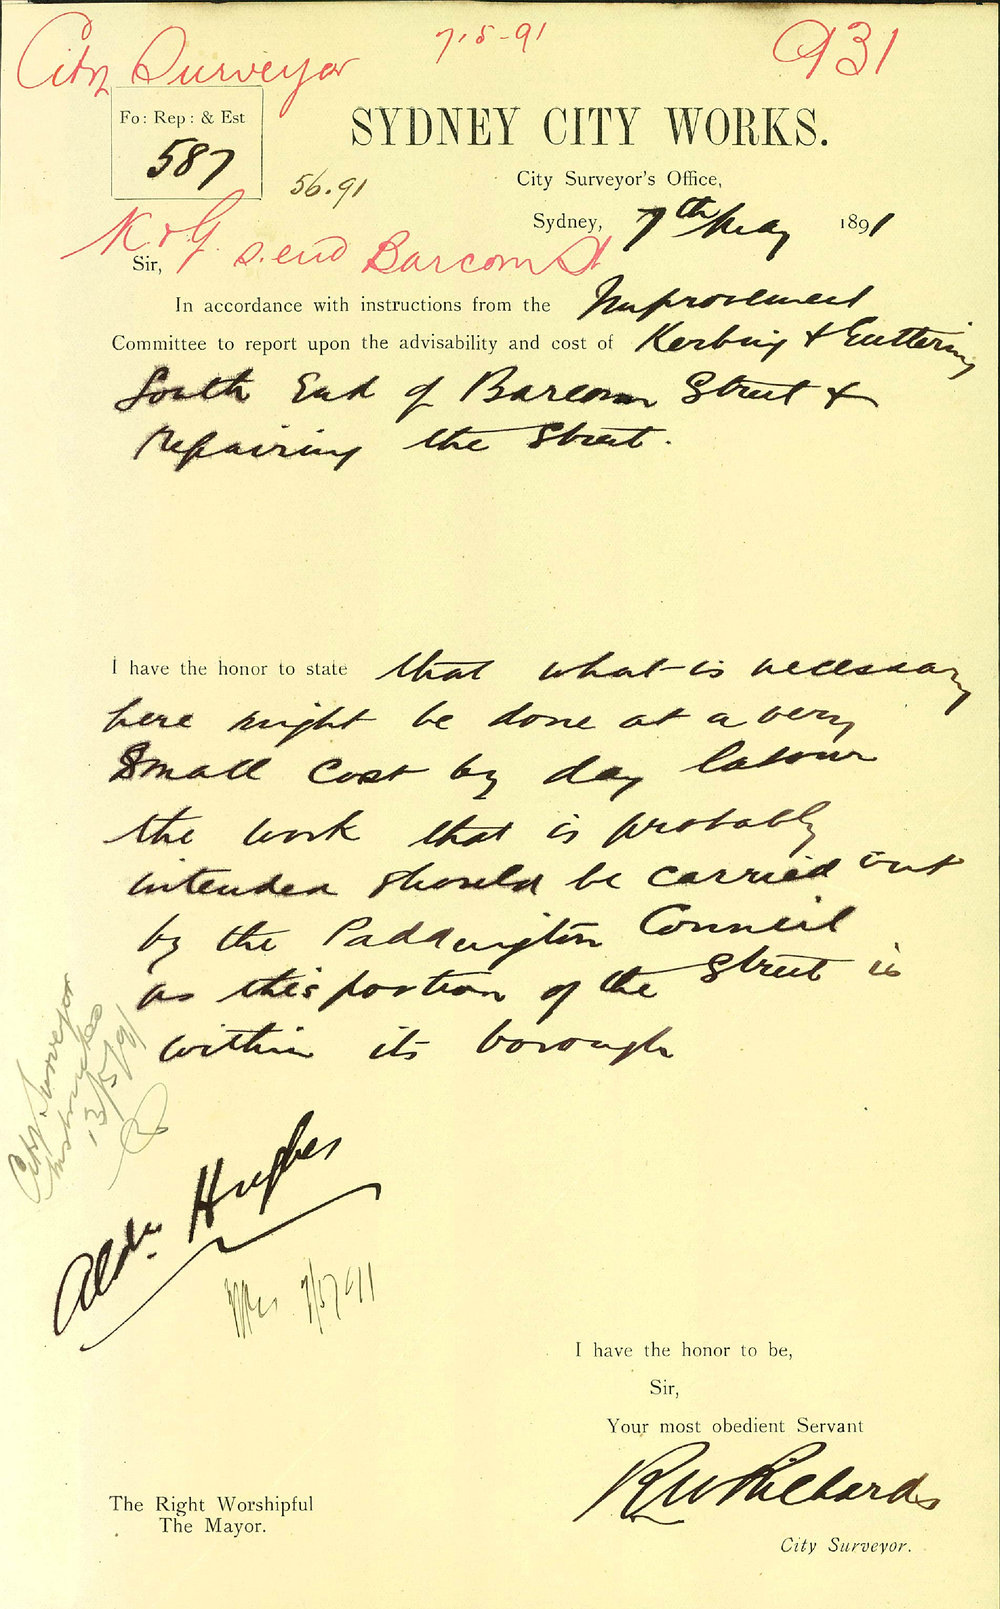 City Surveyor
7.5-91
931
Fo: Rep: & Est
587
56.91
SYDNEY CITY WORKS.
City Surveyor's Office,
Sydney, 7th May 1891
K & G S. end Barcom St
Sir,
In accordance with instructions from the Improvement
Committee to report upon the advisability and cost of Kerbing & Guttering
South End of Barcom Street &
repairing the Street.
I have the honor to state that what is necessary
here might be done at a very
Small cost by day labour
the work that is probably
intended should be carried out
by the Paddington Council
as this portion of the Street is
within its borough
City Surveyor
13/5/91
Aldn. Hughes
7/5/91
I have the honor to be,
Sir,
Your most obedient Servant
R W Richards
City Surveyor.
The Right Worshipful
The Mayor.